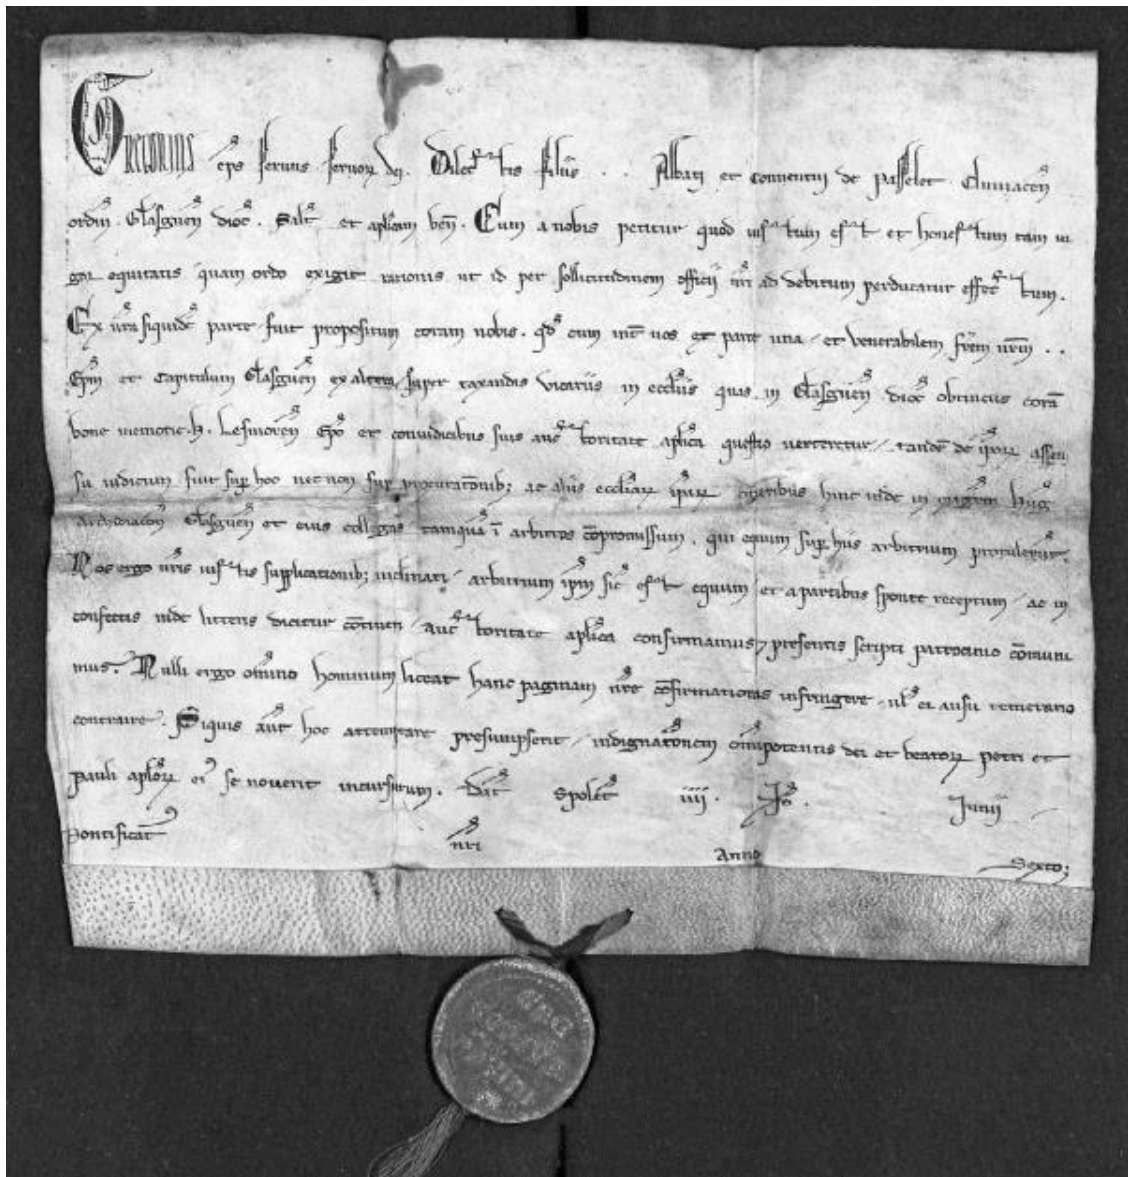 Gregorius eps servus servoꝝ dei. Dilectis filiis . . Abbati et conventui de Passelet Cluniaceñ
ordiñ Glasgueñ dioc̄. Salt̄ et aplicam beñ. Cum a nobis petitur quod iustum est et honestum tam vi
gor equitatis quam ordo exigit rationis ut id per sollicitudinem officii nr̄i ad debitum perducatur effectum.
Ex vr̄a siquidē parte fuit propositum coram nobis. qđ cum int̄ vos ex parte una et venerabilem frēm nr̄m . .
Epm̄ et Capitulum Glasgueñ ex altera super taxandis vicariis in eccliis quas in Glasgueñ dioc̄ obtinetis corā
bone memorie. H. Lesmoreñ Epō et coniudicibus suis auctoritate aplica questio verteretur tandē de ipsoꝝ assen
su iudicum fuit suꝑ hoc nec non suꝑ procurationibꝫ ac aliis eccliaꝝ ipsaꝝ oneribus hinc inde in magrm̄ Hug̃
Archidiacoñ Glasgueñ et eius collegas tamquā ī arbitros cōpromissum. qui equum suꝑ hiis arbitrium protulerūt.
Nos ergo vr̄is iustis supplicationibꝫ inclinati arbitrium ipm̄ sic̄ est equum et a partibus sponte receptum ac in
confectis inde litteris dicitur cōtineri auctoritate aplica confirmamus et presentis scripti patrocinio cōmuni
mus. Nulli ergo omīno hominum liceat hanc paginam nr̄e cōfirmationis infringere vl̄ ei ausu temerario
contraire. Siquis aūt hoc attemptare presumpserit indignationem omīpotentis dei et beatoꝝ Petri et
Pauli aploꝝ eiꝰ se noverit incursurum. Dat̄ Spolet̄ iiij. Id̄. Junij
Pontificat̄ nr̄i Anno Sexto;